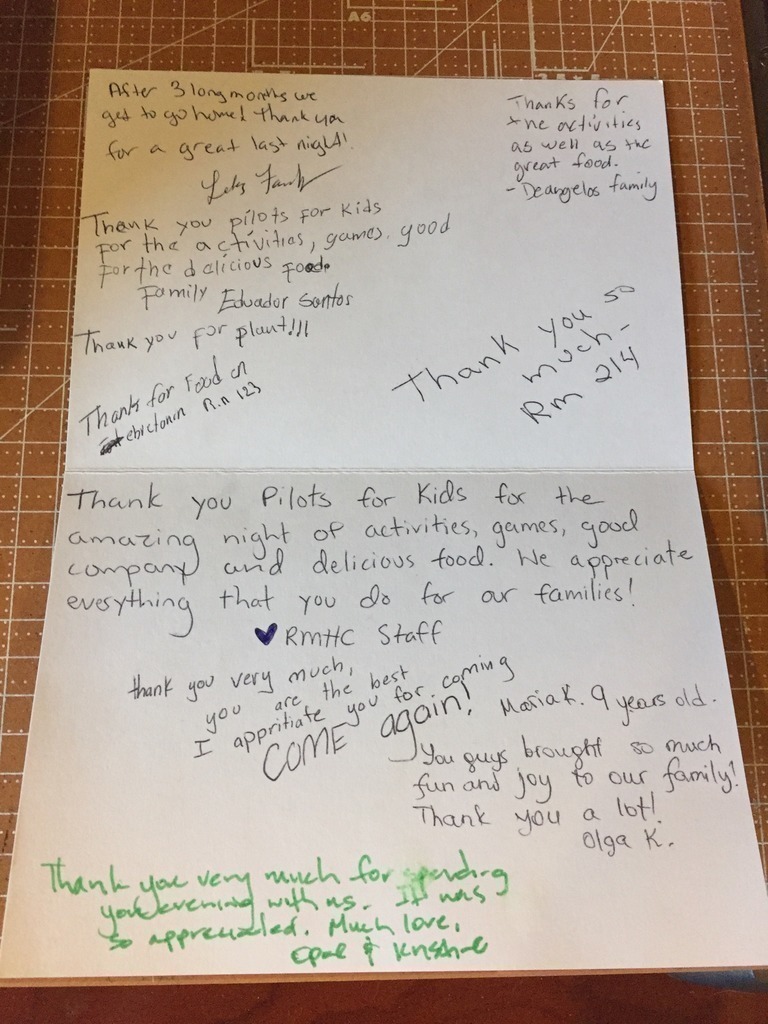 A6
After 3 long months we
get to go home! Thank you
for a great last night!
Thanks for
the activities
as well as the
great food.
- Deangelos family
Thank you pilots for kids
for the activities, games. good
for the dalicious food.
Family Eduador Santos
Thank you for plant!!!
Thanks for Food on
R.n 123
Thank you so
much -
Rm 214
Thank you Pilots for Kids for the
amazing night of activities, games, good
company and delicious food. We appreciate
everything that you do for our families!
RMHC Staff
thank you very much,
you are the best
I appritiate you for coming
COME again!
Mariak. 9 years old.
You guys brought so much
fun and joy to our family!
Thank you a lot!
Olga K.
Thank you very much for spending
your evening with us. It was
so appreciated. Much love,
&